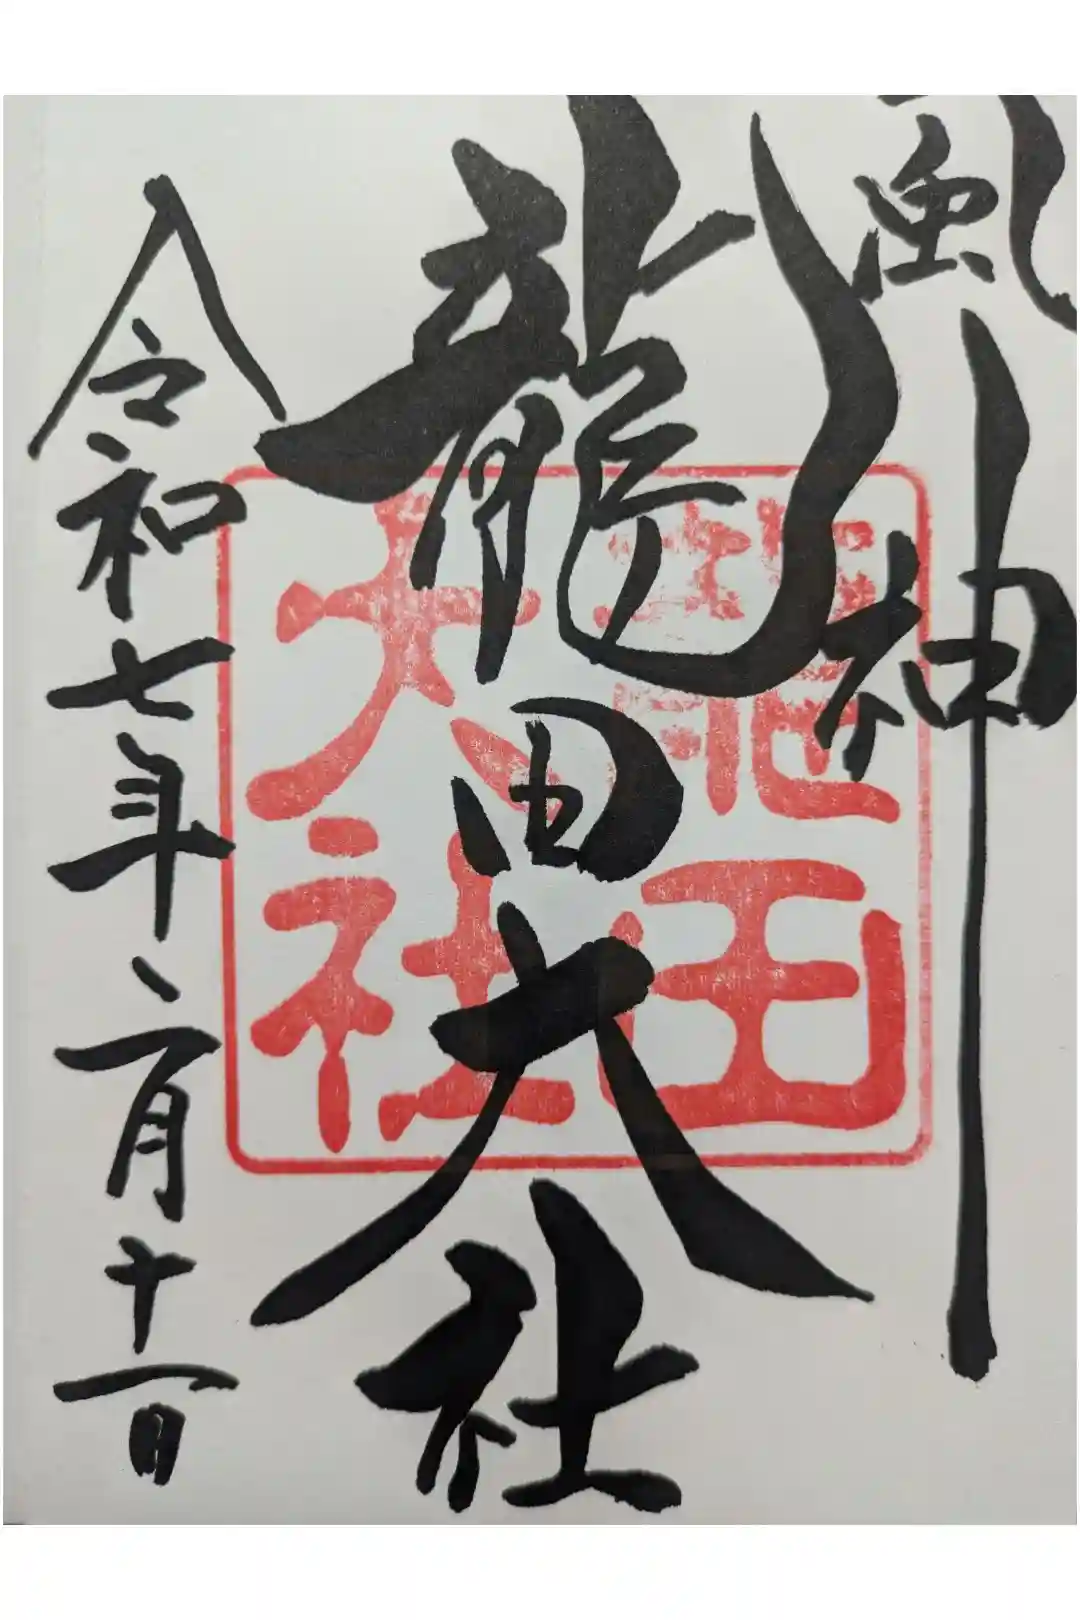 風神
龍田大社
龍田
大社
令和七年二月十一日